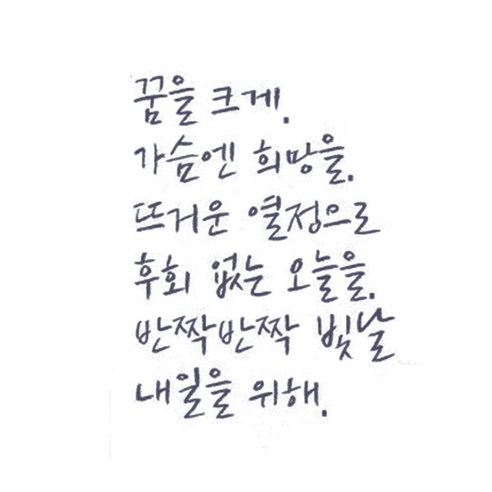 꿈을 크게.
가슴엔 희망을.
뜨거운 열정으로
후회 없는 오늘을.
반짝반짝 빛날
내일을 위해.